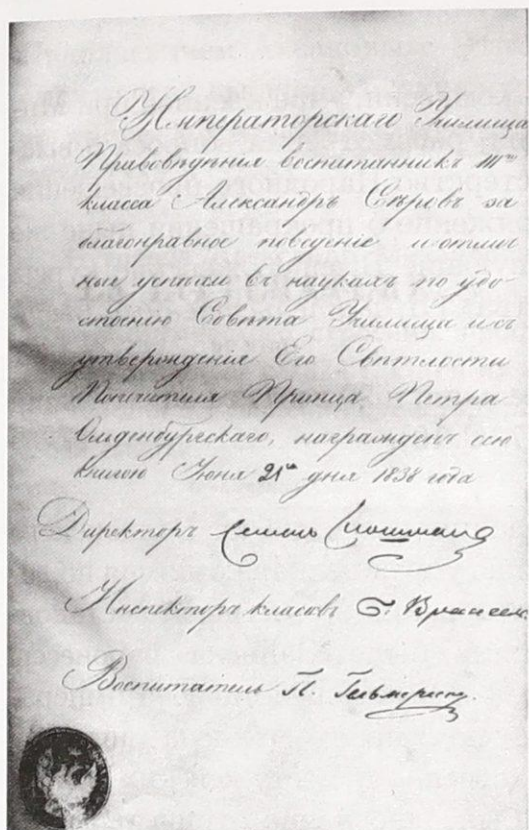 Императорскаго Училища
Правовѣдѣнія воспитанникъ IIIго
класса Александръ Сѣровъ за
благонравное поведеніе и отлич
ные успѣхи въ наукахъ по удо-
стоенію Совѣта Училища и съ
утвержденія Его Свѣтлости
Попечителя Принца Петра
Ольденбургскаго, награжденъ сею
книгою Іюня 21го дня 1838 года
Директоръ Семенъ
Инспекторъ класовъ
Воспитатель П.